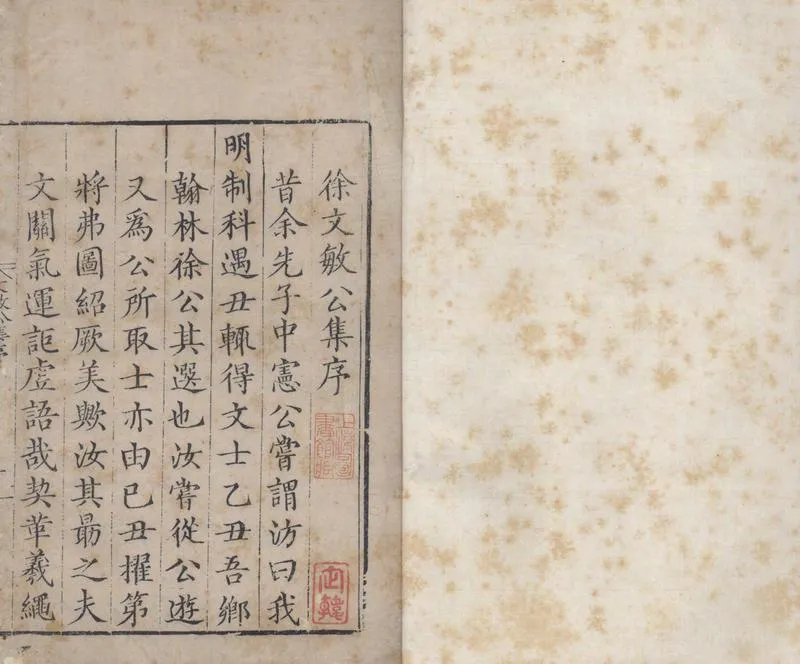 徐文敏公集序
上海圖書館藏
昔余先子中憲公嘗謂汸曰我
明制科遇丑輒得文士乙丑吾鄉
翰林徐公其選也汝嘗從公遊
又爲公所取士亦由已丑擢第
將弗圖紹厥美歟汝其朂之夫
文關氣運詎虛語哉契革羲繩